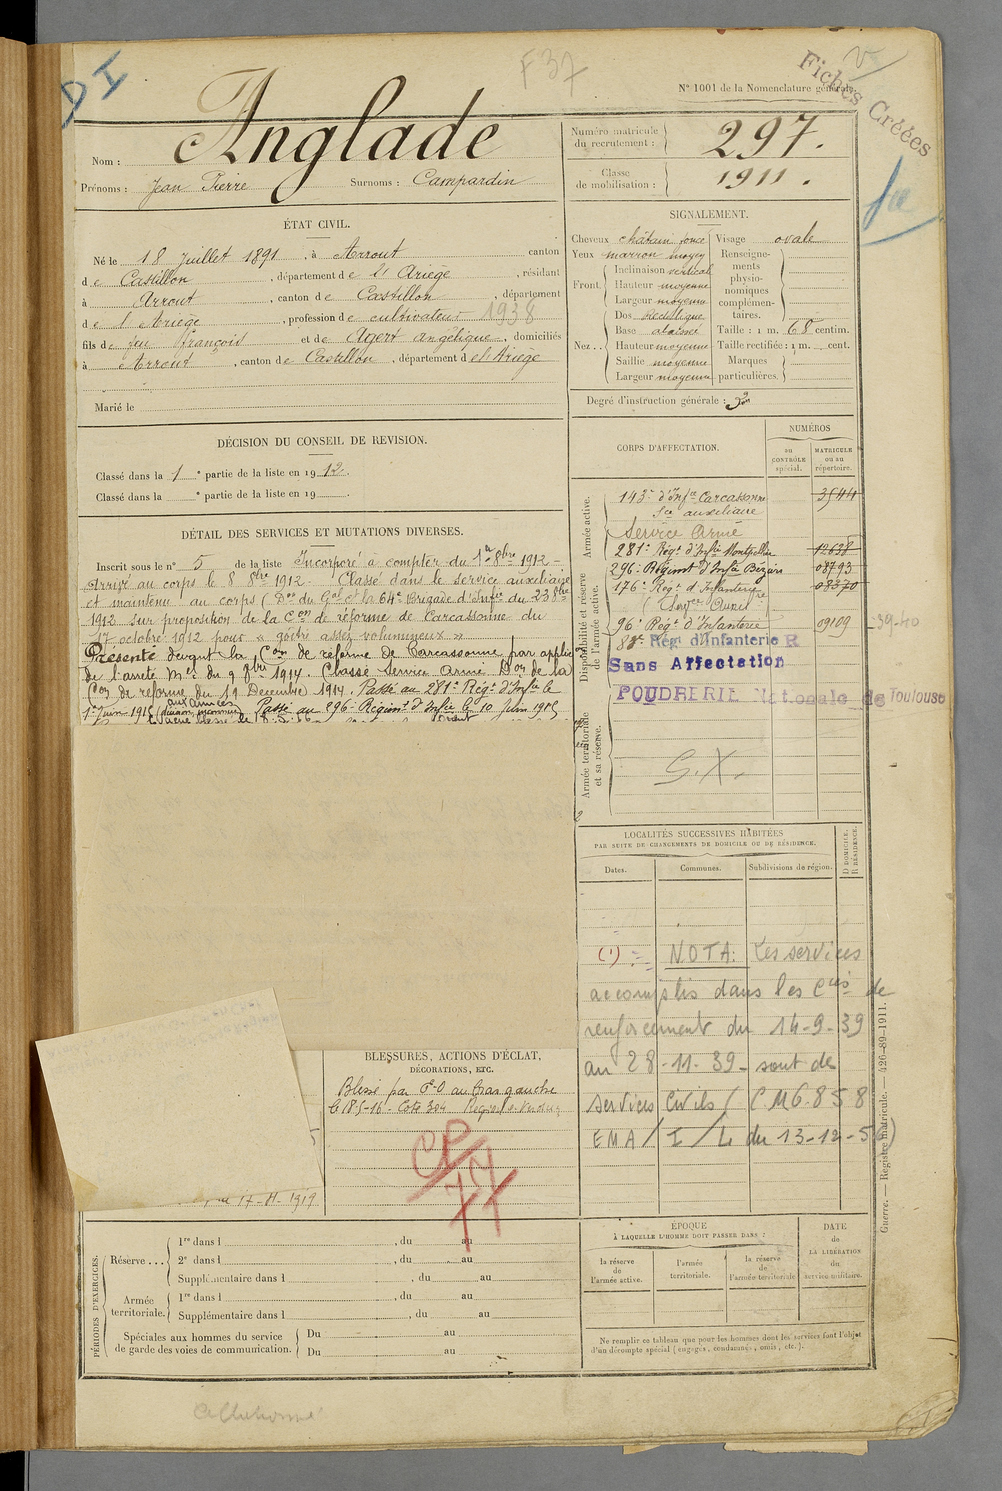 DI
F37
N° 1001 de la Nomenclature générale.
Fiches Créées
Nom : Anglade
Prénoms : Jean Pierre Surnoms : Campardin
Numéro matricule du recrutement : 297.
Classe de mobilisation : 1911.
ÉTAT CIVIL.
Né le 18 Juillet 1891, à Arrout canton
de Castillon, département de l'Ariège, résidant
à Arrout, canton de Castillon, département
de l'Ariège, profession de cultivateur 1938
fils de feu françois et de Agert Angélique, domiciliés
à Arrout, canton de Castillon, département de l'Ariège
Marié le
SIGNALEMENT.
Cheveux châtain foncé
Yeux marron moyen
Front. Inclinaison vertical
Hauteur moyenne
Largeur moyenne
Nez. Dos
Base abaissé
Hauteur moyenne
Saillie moyenne
Largeur moyenne
Visage ovale
Renseignements physionomiques complémentaires.
Taille : 1 m. 68 centim.
Taille rectifiée : 1 m. cent.
Marques particulières.
Degré d'instruction générale : 3
DÉCISION DU CONSEIL DE REVISION.
Classé dans la 1e partie de la liste en 1912.
Classé dans la e partie de la liste en 19
DÉTAIL DES SERVICES ET MUTATIONS DIVERSES.
Inscrit sous le n° 5 de la liste Incorporé à compter du 1er 8bre 1912 -
Arrivé au corps le 8 8bre 1912. Classé dans le service auxiliaire
et maintenu au corps (Don du Gal Ct la 64e Brigade d'Infie du 23 8bre
1912 sur proposition de la Con de réforme de Carcassonne du
17 octobre 1912 pour "goître assez volumineux"
Présenté devant la Con de réforme de Carcassonne par applic
de l'arreté Mel du 9 9bre 1914. Classé Service Armé Don de la
Con de réforme du 19 Décembre 1914. Passé au 281e Régt d'Infie le
aux armées
1er Juin 1915 (division inconnue) Passé au 296e Régiment d'Infie le 10 Juin 1915
CORPS D'AFFECTATION.
NUMÉROS
au CONTRÔLE spécial.
MATRICULE ou au répertoire.
Armée active.
143e d'Infie Carcassonne 3544
Sce auxiliaire
Service Armé
Disponibilité et réserve de l'armée active.
281e Régt d'Infie Montpellier 12638
296e Régimt d'Infie Béziers 08793
176e Régt d'Infanterie 08370
96e Régt d'Infanterie 09109
-39-40
Rég. d'Infanterie R
Sans Affectation
POUDRERIE Nationale de Toulouse
Armée territoriale et sa réserve.
S.X.
LOCALITÉS SUCCESSIVES HABITÉES
PAR SUITE DE CHANGEMENTS DE DOMICILE OU DE RÉSIDENCE.
Dates. Communes. Subdivisions de région. D. DOMICILE. R. RÉSIDENCE.
(1) NOTA: Les services
accomplis dans les Cies de
renforcement du 14-9-39
au 28-11-39 - sont des
services Civils (CM 6.858
EMA/I/L du 13-12-56)
BLESSURES, ACTIONS D'ÉCLAT,
DÉCORATIONS, ETC.
Blessé par E.O au bras gauche
le 18-5-16 - Cote 304 Région de Verdun
17-11-1919
PÉRIODES D'EXERCICES.
Réserve... 1re dans l , du au
2e dans l , du au
Supplémentaire dans l , du au
Armée territoriale. 1re dans l , du au
Supplémentaire dans l , du au
Spéciales aux hommes du service de garde des voies de communication. Du au
Du au
ÉPOQUE
À LAQUELLE L'HOMME DOIT PASSER DANS :
la réserve de l'armée active.
l'armée territoriale.
la réserve de l'armée territoriale
DATE de LA LIBÉRATION du service militaire.
Ne remplir ce tableau que pour les hommes dont les services font l'objet
d'un décompte spécial (engagés, condamnés, omis, etc.).
Guerre. — Registre matricule. — 426-89-1911.